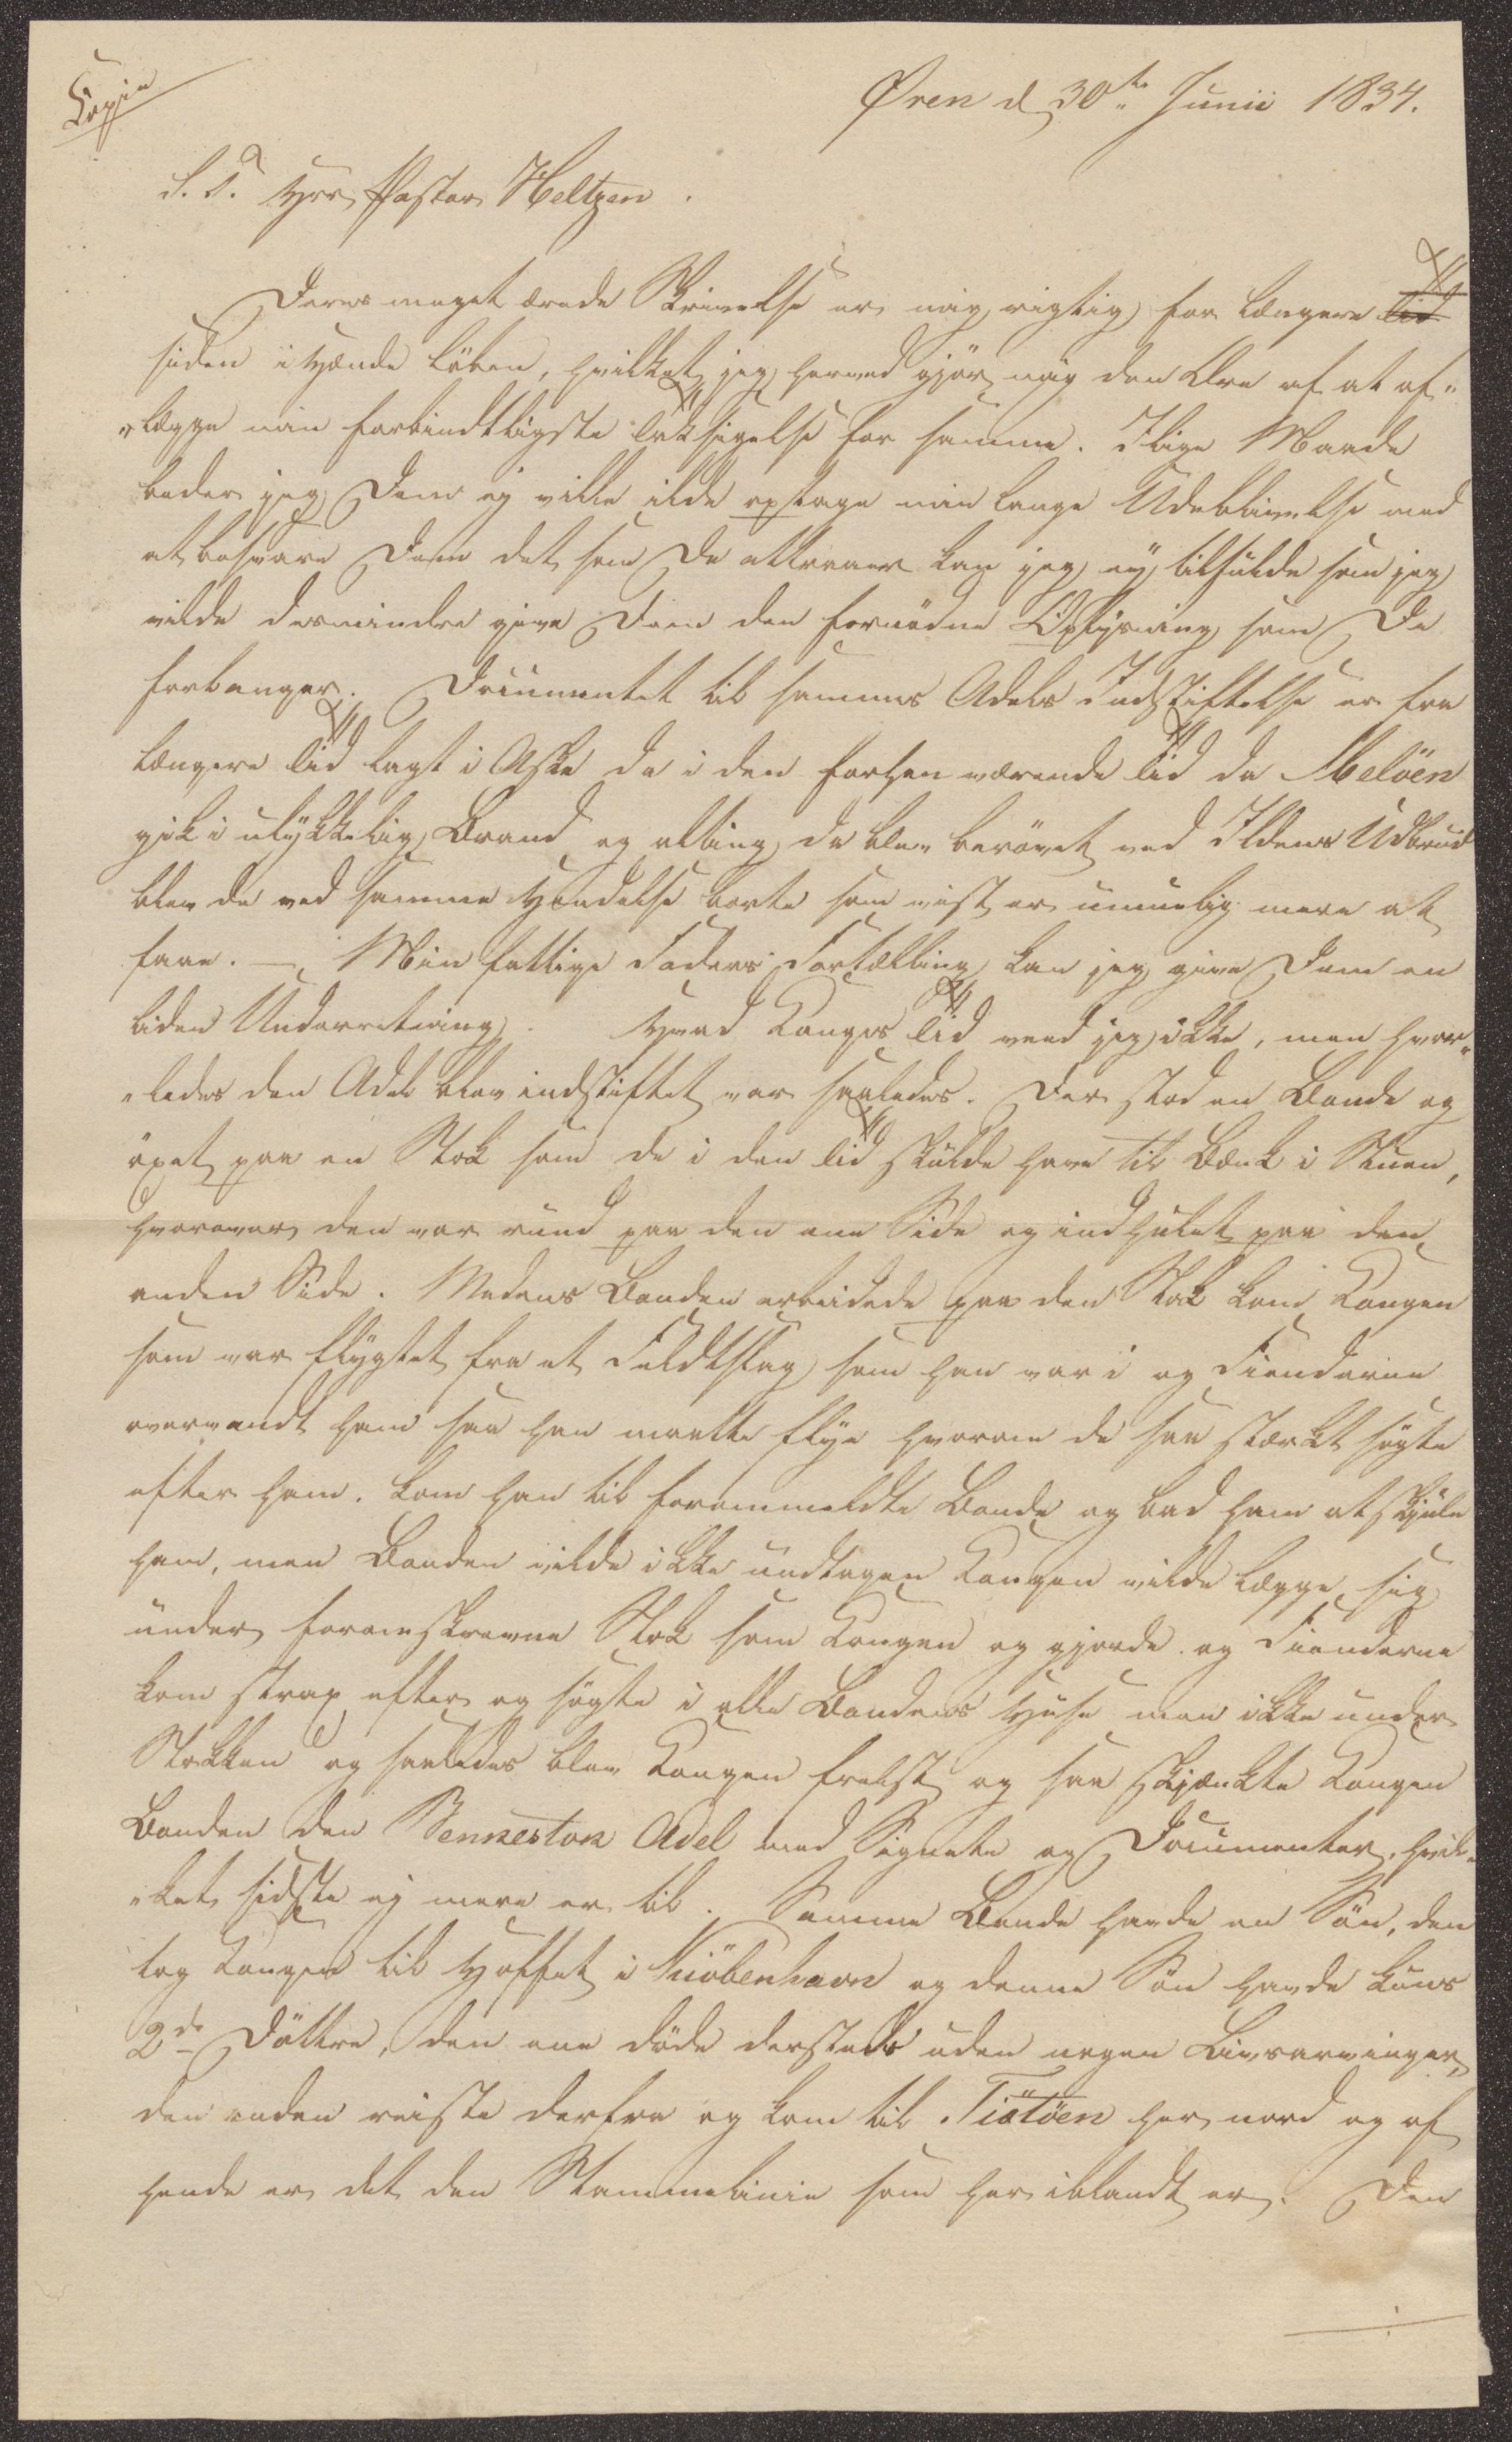 Copie
Øren d 30te Junii 1834.
S. T. Hrr Pastor Heltzen.
Deres meget ærede Skrivelse er mig rigtig for længere tid
siden i Hænde löben, hvilket jeg herved gjør mig den Ære af at af-
-lægge min forbindtligste taksigelse for samme. I lige Maade
beder jeg Dem ej ville ilde optage min lange Udeblivelse med
at besvare Dem det som De attraaer kan jeg ej tilfulde som jeg
vilde desmindre give Dem den fornödne Oplysning som De
forlanger. Documentet til sammes Adels Indstiftelse er fra
længere tid lagt i Aske da i den forhen værende tid da Melöen
gik i ulykkelig Brand og alting da blev berövet ved Ildens Udbrud
blev de ved samme Hændelse borte som vist er umuelig mere at
faae. — Min fattige Faders Fortælling kan jeg give Dem en
liden Underretning. Hvad Konges tid veed jeg ikke, men hvor-
-ledes den Adel blev indstiftet var saaledes. Der stod en Bonde og
öxet paa en Stok som de i den tid skulde have til Bænk i Stuen,
hvorover den var rund paa den ene Side og indhulet paa den
anden Side. Medens Bonden arbeidede paa den Stok kom Kongen
som var flygtet fra et Feldtslag som han var i og Fienderne
overvandt ham saa han maatte flye hvorom de saa stærkt søgte
efter ham. kom han til forommeldte Bonde og bad ham at skjule
ham, men Bonden vilde ikke undtagen Kongen vilde lægge sig
under foromskrevne Stok som Kongen og gjorde. og Fienderne
kom strax efter og søgte i alle Bondens Huse men ikke under
Stokken og saaledes blev Kongen frelst og saa skjænkte Kongen
Bonden den Benkestok Adel med Signete og Documenter, hvil-
-ket sidste ej mere er til. Samme Bonde havde en Sön, den
tog Kongen til Hoffet i Kiöbenhavn og denne Sön havde kuns
2de Döttre, den ene döde dersteds uden nogen Livsarvinger,
den anden reiste derfra og kom til Tiötöen her nord og af
hende er det den Stammelinie som her iblandt er. Den